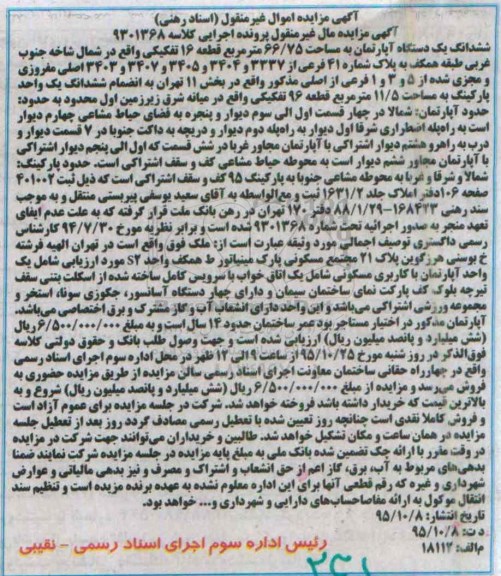 آگهی مزایده اموال غیرمنقول (اسناد رهنی)
آگهی مزایده مال غیرمنقول پرونده اجرایی کلاسه ۹۳۰۱۳۶۸
ششدانگ یک دستگاه آپارتمان به مساحت ۶۶/۷۵ مترمربع قطعه ۱۶ تفکیکی واقع در شمال شاخه جنوب
غربی طبقه همکف به پلاک شماره ۴۱ فرعی از ۳۳۳۷ و ۳۴۰۴ و ۳۴۰۵ و ۳۴۰۷ و ۳۴۰۳ اصلی مفروزی
و مجزی شده از ۵ و ۳ و ۱ فرعی از اصلی مذکور واقع در بخش ۱۱ تهران به انضمام ششدانگ یک واحد
پارکینگ به مساحت ۱۱/۵ مترمربع قطعه ۹۶ تفکیکی واقع در میانه شرق زیرزمین اول محدود به حدود:
حدود آپارتمان: شمالا در چهار قسمت اول الی سوم دیوار و پنجره به فضای حیاط مشاعی چهارم دیوار
است به راه‌پله اضطراری شرقا اول دیوار به راه‌پله دوم دیوار و دریچه به داکت جنوبا در ۷ قسمت دیوار و
درب به راهرو هشتم دیوار اشتراکی با آپارتمان مجاور غربا در شش قسمت که اول الی پنجم دیوار اشتراکی
با آپارتمان مجاور ششم دیوار است به محوطه حیاط مشاعی کف و سقف اشتراکی است. حدود پارکینگ:
شمالا و شرقا و غربا به محوطه مشاعی جنوبا به پارکینگ ۹۵ کف و سقف اشتراکی است که ذیل ثبت ۴۰۱۰۰۲
صفحه ۱۰۶ دفتر املاک جلد ۱۶۳۱/۲ ثبت و مع‌الواسطه به آقای سعید یوسفی پیربستی منتقل و به موجب
سند رهنی ۱۶۸۴۲۳-۸۸/۱/۲۹ دفتر ۱۷۰ تهران در رهن بانک ملت قرار گرفته که به علت عدم ایفای
تعهد منجر به صدور اجرائیه تحت شماره ۹۳۰۱۳۶۸ شده است و برابر نظریه مورخ ۹۴/۷/۳۰ کارشناس
رسمی دادگستری توصیف اجمالی مورد وثیقه عبارت است از: ملک فوق واقع است در تهران الهیه فرشته
خ بوسنی هرزگوین پلاک ۲۱ مجتمع مسکونی پارک مینیاتور ط همکف واحد S۲ مورد ارزیابی شامل یک
واحد آپارتمان با کاربری مسکونی شامل یک اتاق خواب با سرویس کامل ساخته شده از اسکلت بتنی سقف
تیرچه بلوک کف پارکت نمای ساختمان سیمان و دارای چهار دستگاه آسانسور، جکوزی سونا، استخر و
مجموعه ورزشی اشتراکی می‌باشد و این واحد دارای انشعاب آب و گاز مشترک و برق اختصاصی می‌باشد.
آپارتمان مذکور در اختیار مستاجر بود عمر ساختمان حدود ۱۴ سال است و به مبلغ ۶/۵۰۰/۰۰۰/۰۰۰ ریال
(شش میلیارد و پانصد میلیون ریال) ارزیابی شده است و جهت وصول طلب بانک و حقوق دولتی کلاسه
فوق‌الذکر در روز شنبه مورخ ۹۵/۱۰/۲۵ از ساعت ۹ الی ۱۲ ظهر در محل اداره سوم اجرای اسناد رسمی
واقع در چهارراه حقانی ساختمان معاونت اجرای اسناد رسمی سالن مزایده از طریق مزایده حضوری به
فروش می‌رسد و مزایده از مبلغ ۶/۵۰۰/۰۰۰/۰۰۰ ریال (شش میلیارد و پانصد میلیون ریال) شروع و به
بالاترین قیمت که خریدار داشته باشد فروخته خواهد شد. شرکت در جلسه مزایده برای عموم آزاد است
و فروش کاملا نقدی است چنانچه روز تعیین شده با تعطیل رسمی مصادف گردد روز بعد از تعطیل جلسه
مزایده در همان ساعت و مکان تشکیل خواهد شد. طالبین و خریداران می‌توانند جهت شرکت در مزایده
در وقت مقرر با ارائه چک تضمین شده بانک ملی به مبلغ پایه مزایده در جلسه مزایده شرکت نمایند ضمنا
بدهی‌های مربوط به آب، برق، گاز اعم از حق انشعاب و اشتراک و مصرف و نیز بدهی مالیاتی و عوارض
شهرداری و غیره که رقم قطعی آنها برای این اداره معلوم نشده به عهده برنده مزیده است و تنظیم سند
انتقال موکول به ارائه مفاصاحساب‌های دارایی و شهرداری و... خواهد بود.
تاریخ انتشار: ۹۵/۱۰/۸
د ت: ۹۵/۱۰/۸
م‌الف: ۱۸۱۱۳
رئیس اداره سوم اجرای اسناد رسمی - نقیبی